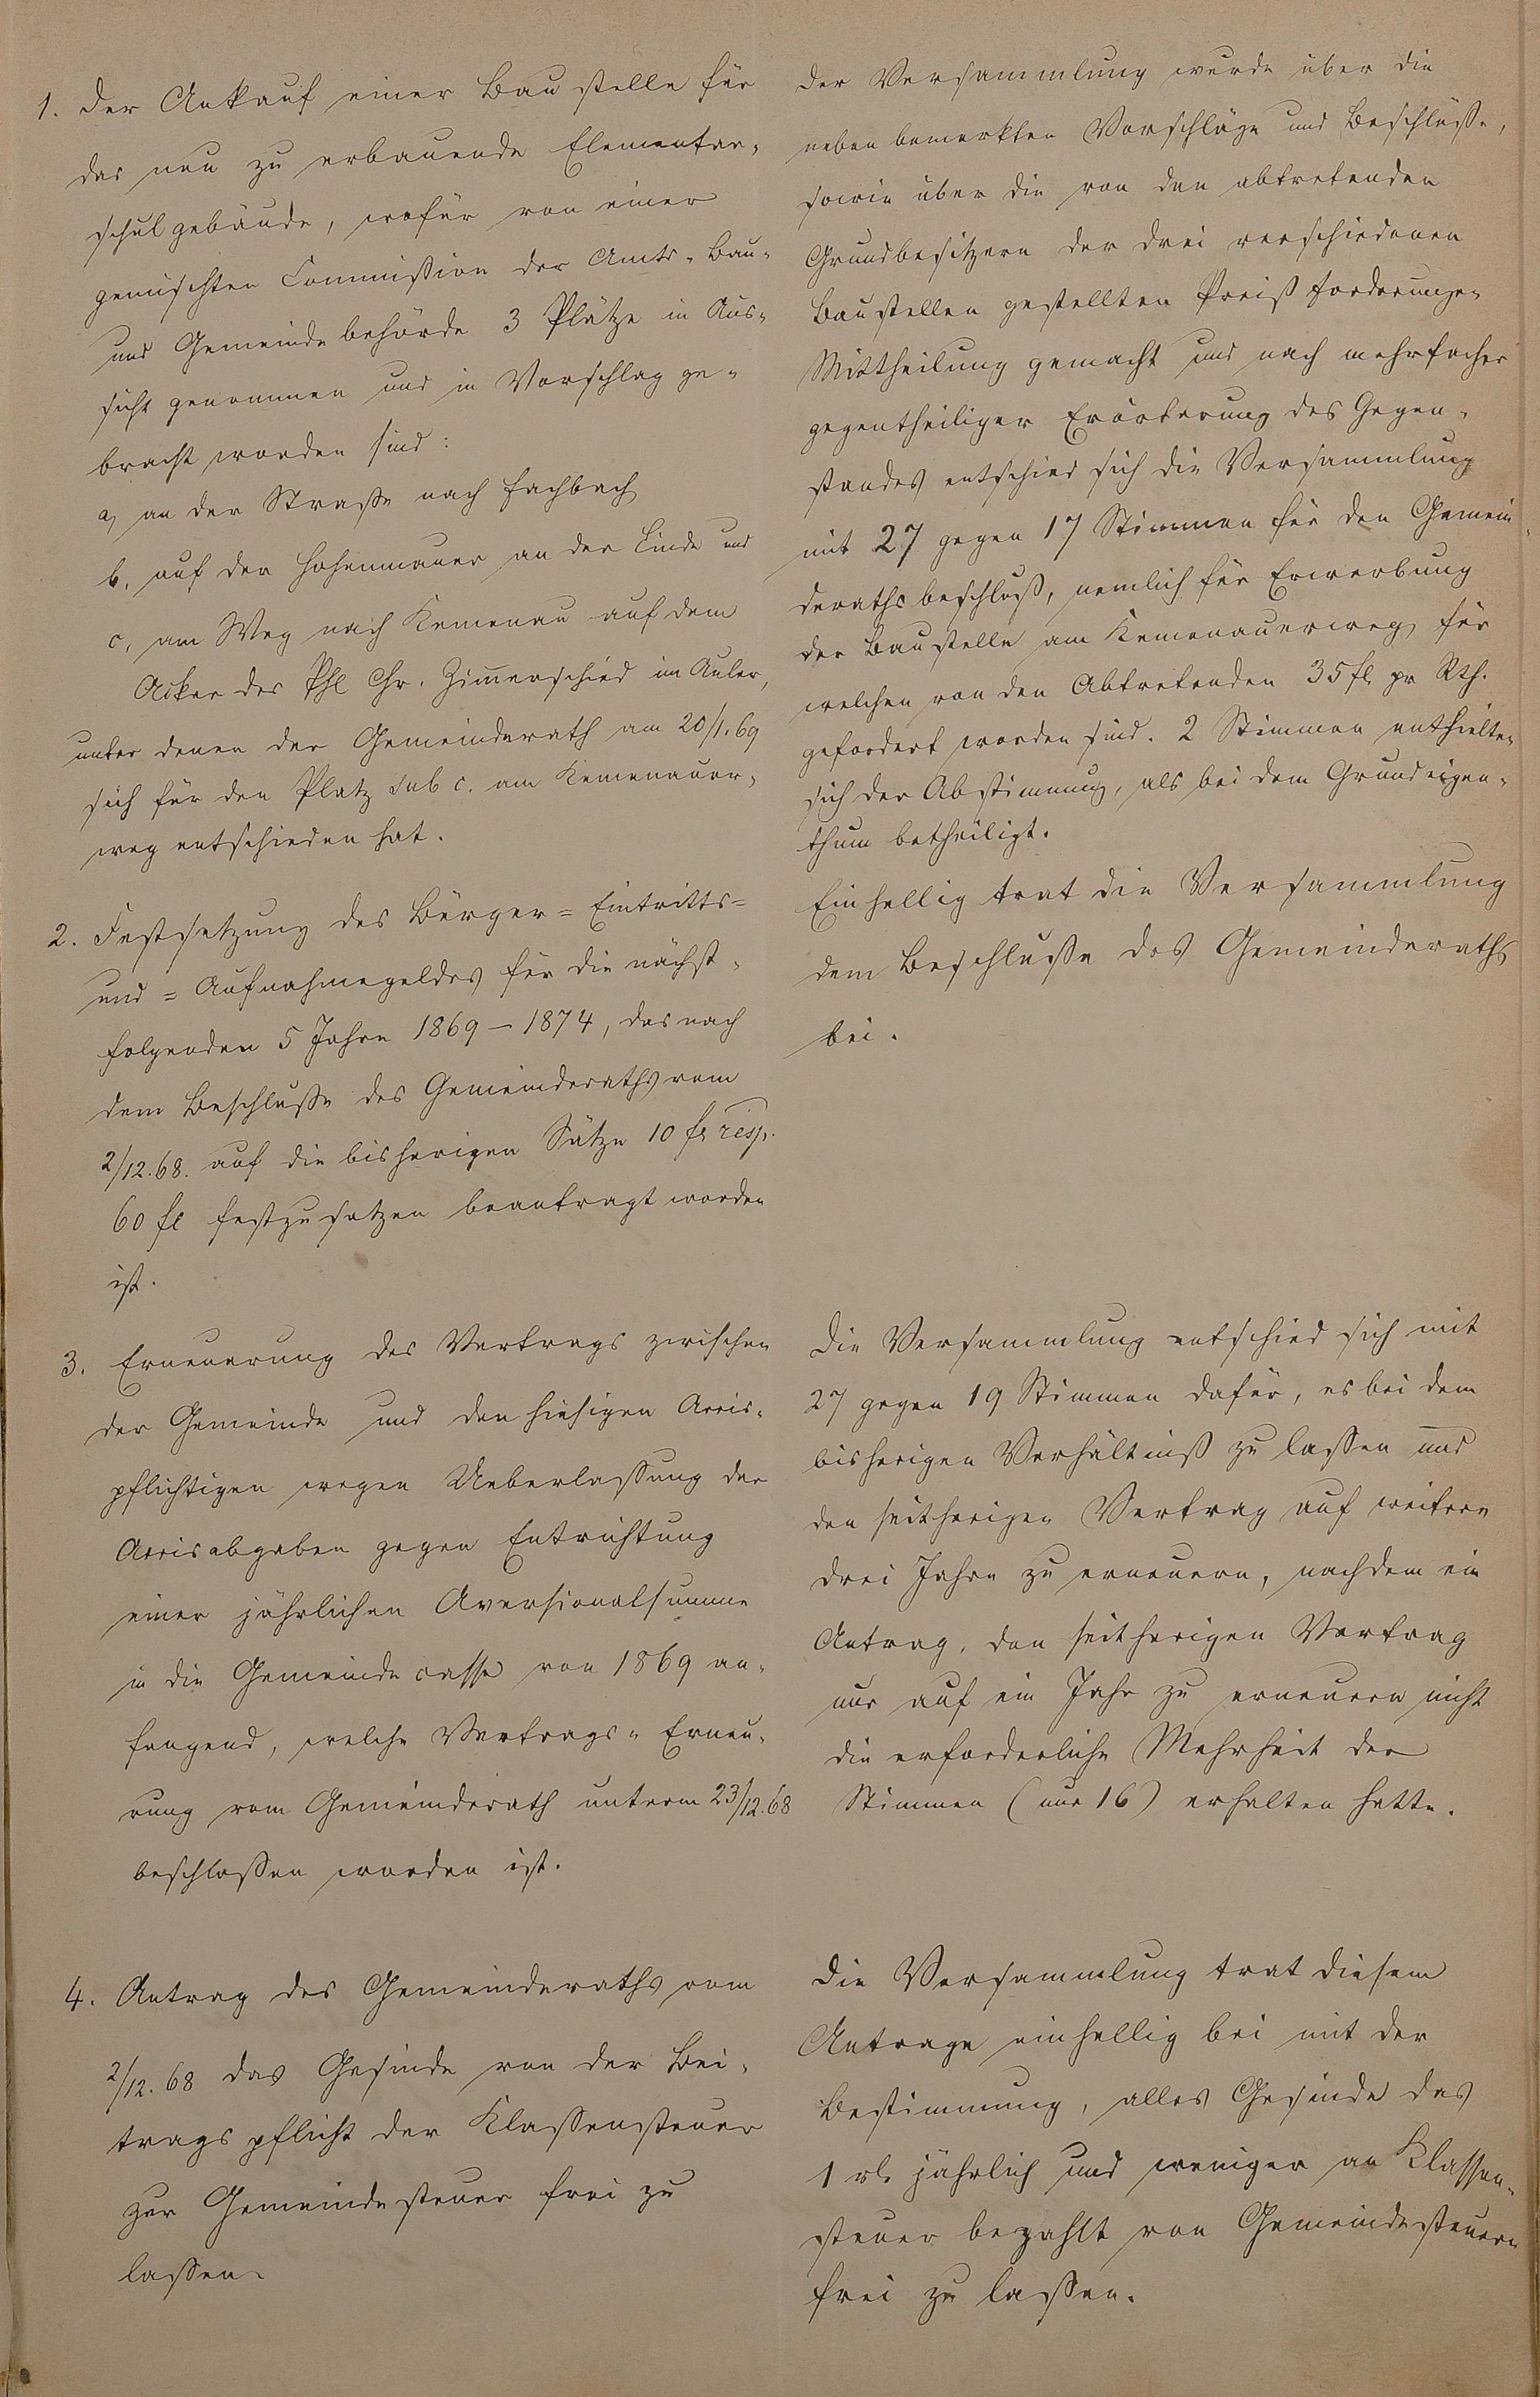 1. Der Ankauf einer Baustelle für
das neu zu erbauende Elementar-
schulgebäude, wofür von einer
gemischten Commißion der Amts-Bau-
und Gemeindebehörde 3 Plätze in Aus-
sicht genommen und in Vorschlag ge-
bracht worden sind:
a, an der Straße nach Fachbach
b, auf der Hohenmauer an der Linde und
c, am Weg nach Kemenau auf dem
Acker des Phl Chr. Zimerschied im Auler,
unter denen der Gemeinderath am 20/1.69
sich für den Platz sub c. am Kemenauer-
weg entschieden hat.
2. Festsetzung des Bürger=Eintritts=
und =Aufnahmegeldes für die nächst-
folgenden 5 Jahre 1869–1874, das nach
dem Beschluße des Gemeinderaths vom
2/12.68. auf die bisherigen Sätze 10 fl resp.
60 fl festzusetzen beantragt worden
ist.
3. Erneuerung des Vertrags zwischen
der Gemeinde und den hiesigen Accis-
pflichtigen wegen Ueberlaßung der
Accisabgaben gegen Entrichtung
einer jährlichen Aversionalsumme
in die Gemeindecasse von 1869 an-
fangend, welche Vertrags-Erneu-
rung vom Gemeinderath unterm 23/12.68
beschloßen worden ist.
4. Antrag des Gemeinderaths vom
2/12.68 das Gesinde von der Bei-
tragspflicht der Klaßensteuer
zur Gemeindesteuer frei zu
laßen.
Der Versammlung wurde über die
neben bemerkten Vorschläge und Beschlüße,
sowie über die von den abtretenden
Grundbesitzern der drei verschiedenen
Baustellen gestellten Preißforderungen
Mittheilung gemacht und nach mehrfacher
gegentheiliger Erörterung des Gegen-
standes entschied sich die Versammlung
mit 27 gegen 17 Stimmen für den Gemein-
derathsbeschluß, nemlich für Erwerbung
der Baustelle am Kemenauerweg, für
welchen von den Abtretenden 35 fl pr Rth.
gefordert worden sind. 2 Stimmen enthielten
sich der Abstimmung, als bei dem Grundeigen-
thum betheiligt.
Einhellig trat die Versammlung
dem Beschluße des Gemeinderaths
bei.
Die Versammlung entschied sich mit
27 gegen 19 Stimmen dafür, es bei dem
bisherigen Verhältniß zu laßen und
den seitherigen Vertrag auf weitere
drei Jahre zu erneuern, nachdem ein
Antrag, den seitherigen Vertrag
nur auf ein Jahr zu erneuern nicht
die erforderliche Mehrheit der
Stimmen (nur 16) erhalten hatte.
Die Versammlung trat diesem
Antrage einhellig bei mit der
Bestimmung, alles Gesinde das
1 rl. jährlich und weniger an Klassen-
steuer bezahlt von Gemeindesteuern
frei zu laßen.